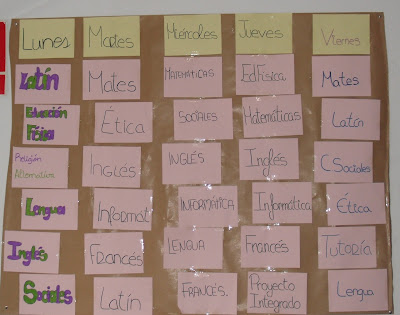 Lunes Martes Miércoles Jueves Viernes
Latín Mates MATEMÁTICAS EdFísica Mates
Educación Física Ética SOCIALES Matemáticas Latín
Religión Alternativa INGLÉS INGLÉS Inglés C Sociales
Lengua Informát INFORMÁTICA Informática Ética
Inglés Francés LENGUA Francés TUTORÍA
Sociales Latín FRANCÉS. Proyecto Integrado Lengua